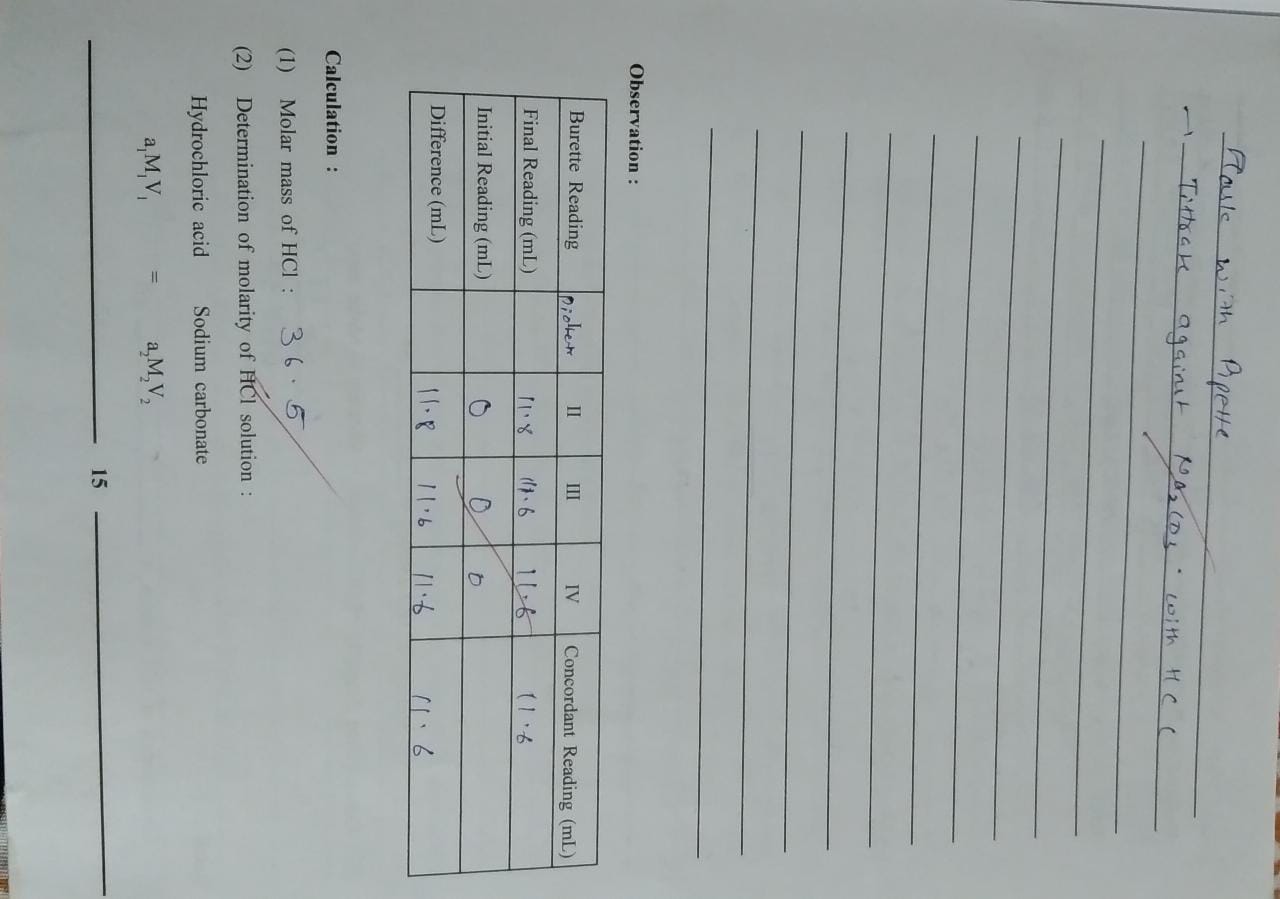 flask with Pipette
→ Titrate against Na2CO3 . with HCl
Observation :
Burette Reading II III IV Concordant Reading (mL)
Final Reading (mL) 11.8 11.6 11.6 11.6
Initial Reading (mL) 0 0 0
Difference (mL) 11.8 11.6 11.6 11.6
Calculation :
(1) Molar mass of HCl : 36.5
(2) Determination of molarity of HCl solution :
Hydrochloric acid Sodium carbonate
a₁M₁V₁ = a₂M₂V₂
15